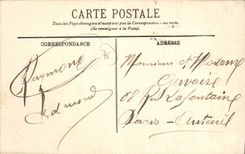 CARTE POSTALE
Tous les Pays étrangers n'acceptent pas la Correspondance au recto.
(Se renseigner à la Poste)
CORRESPONDANCE
ADRESSE
Raymond
Edmond
Monsieur et Madame
68 Rue Lafontaine
Paris-Auteuil